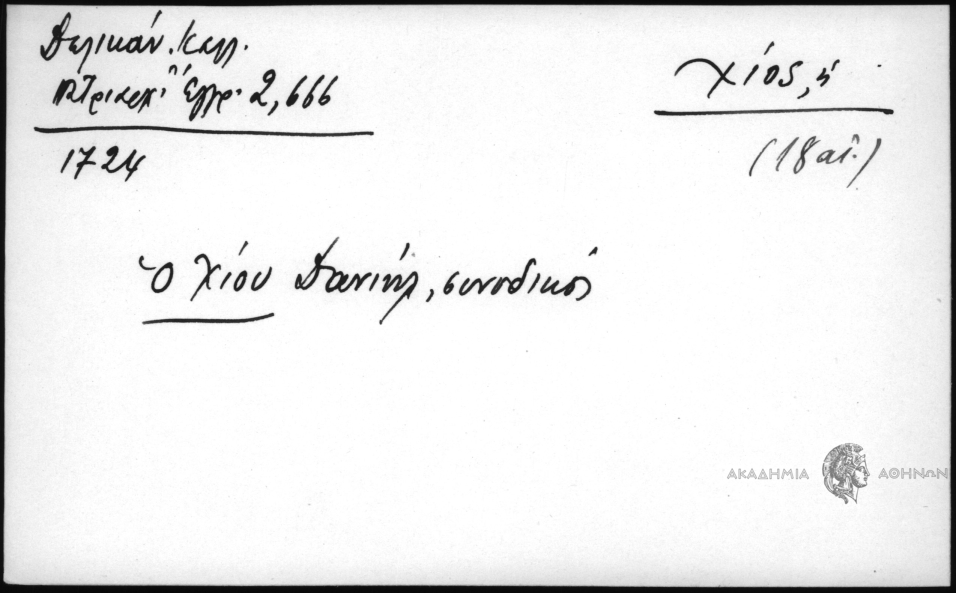 Δελικάν. Καλλ.
Πατριαρχ. Ἔγγρ. 2, 666
1724
Χίος, ἡ
(18 αἰ.)
Ὁ Χίου Δανιήλ, συνοδικός
ΑΚΑΔΗΜΙΑ ΑΘΗΝΩΝ